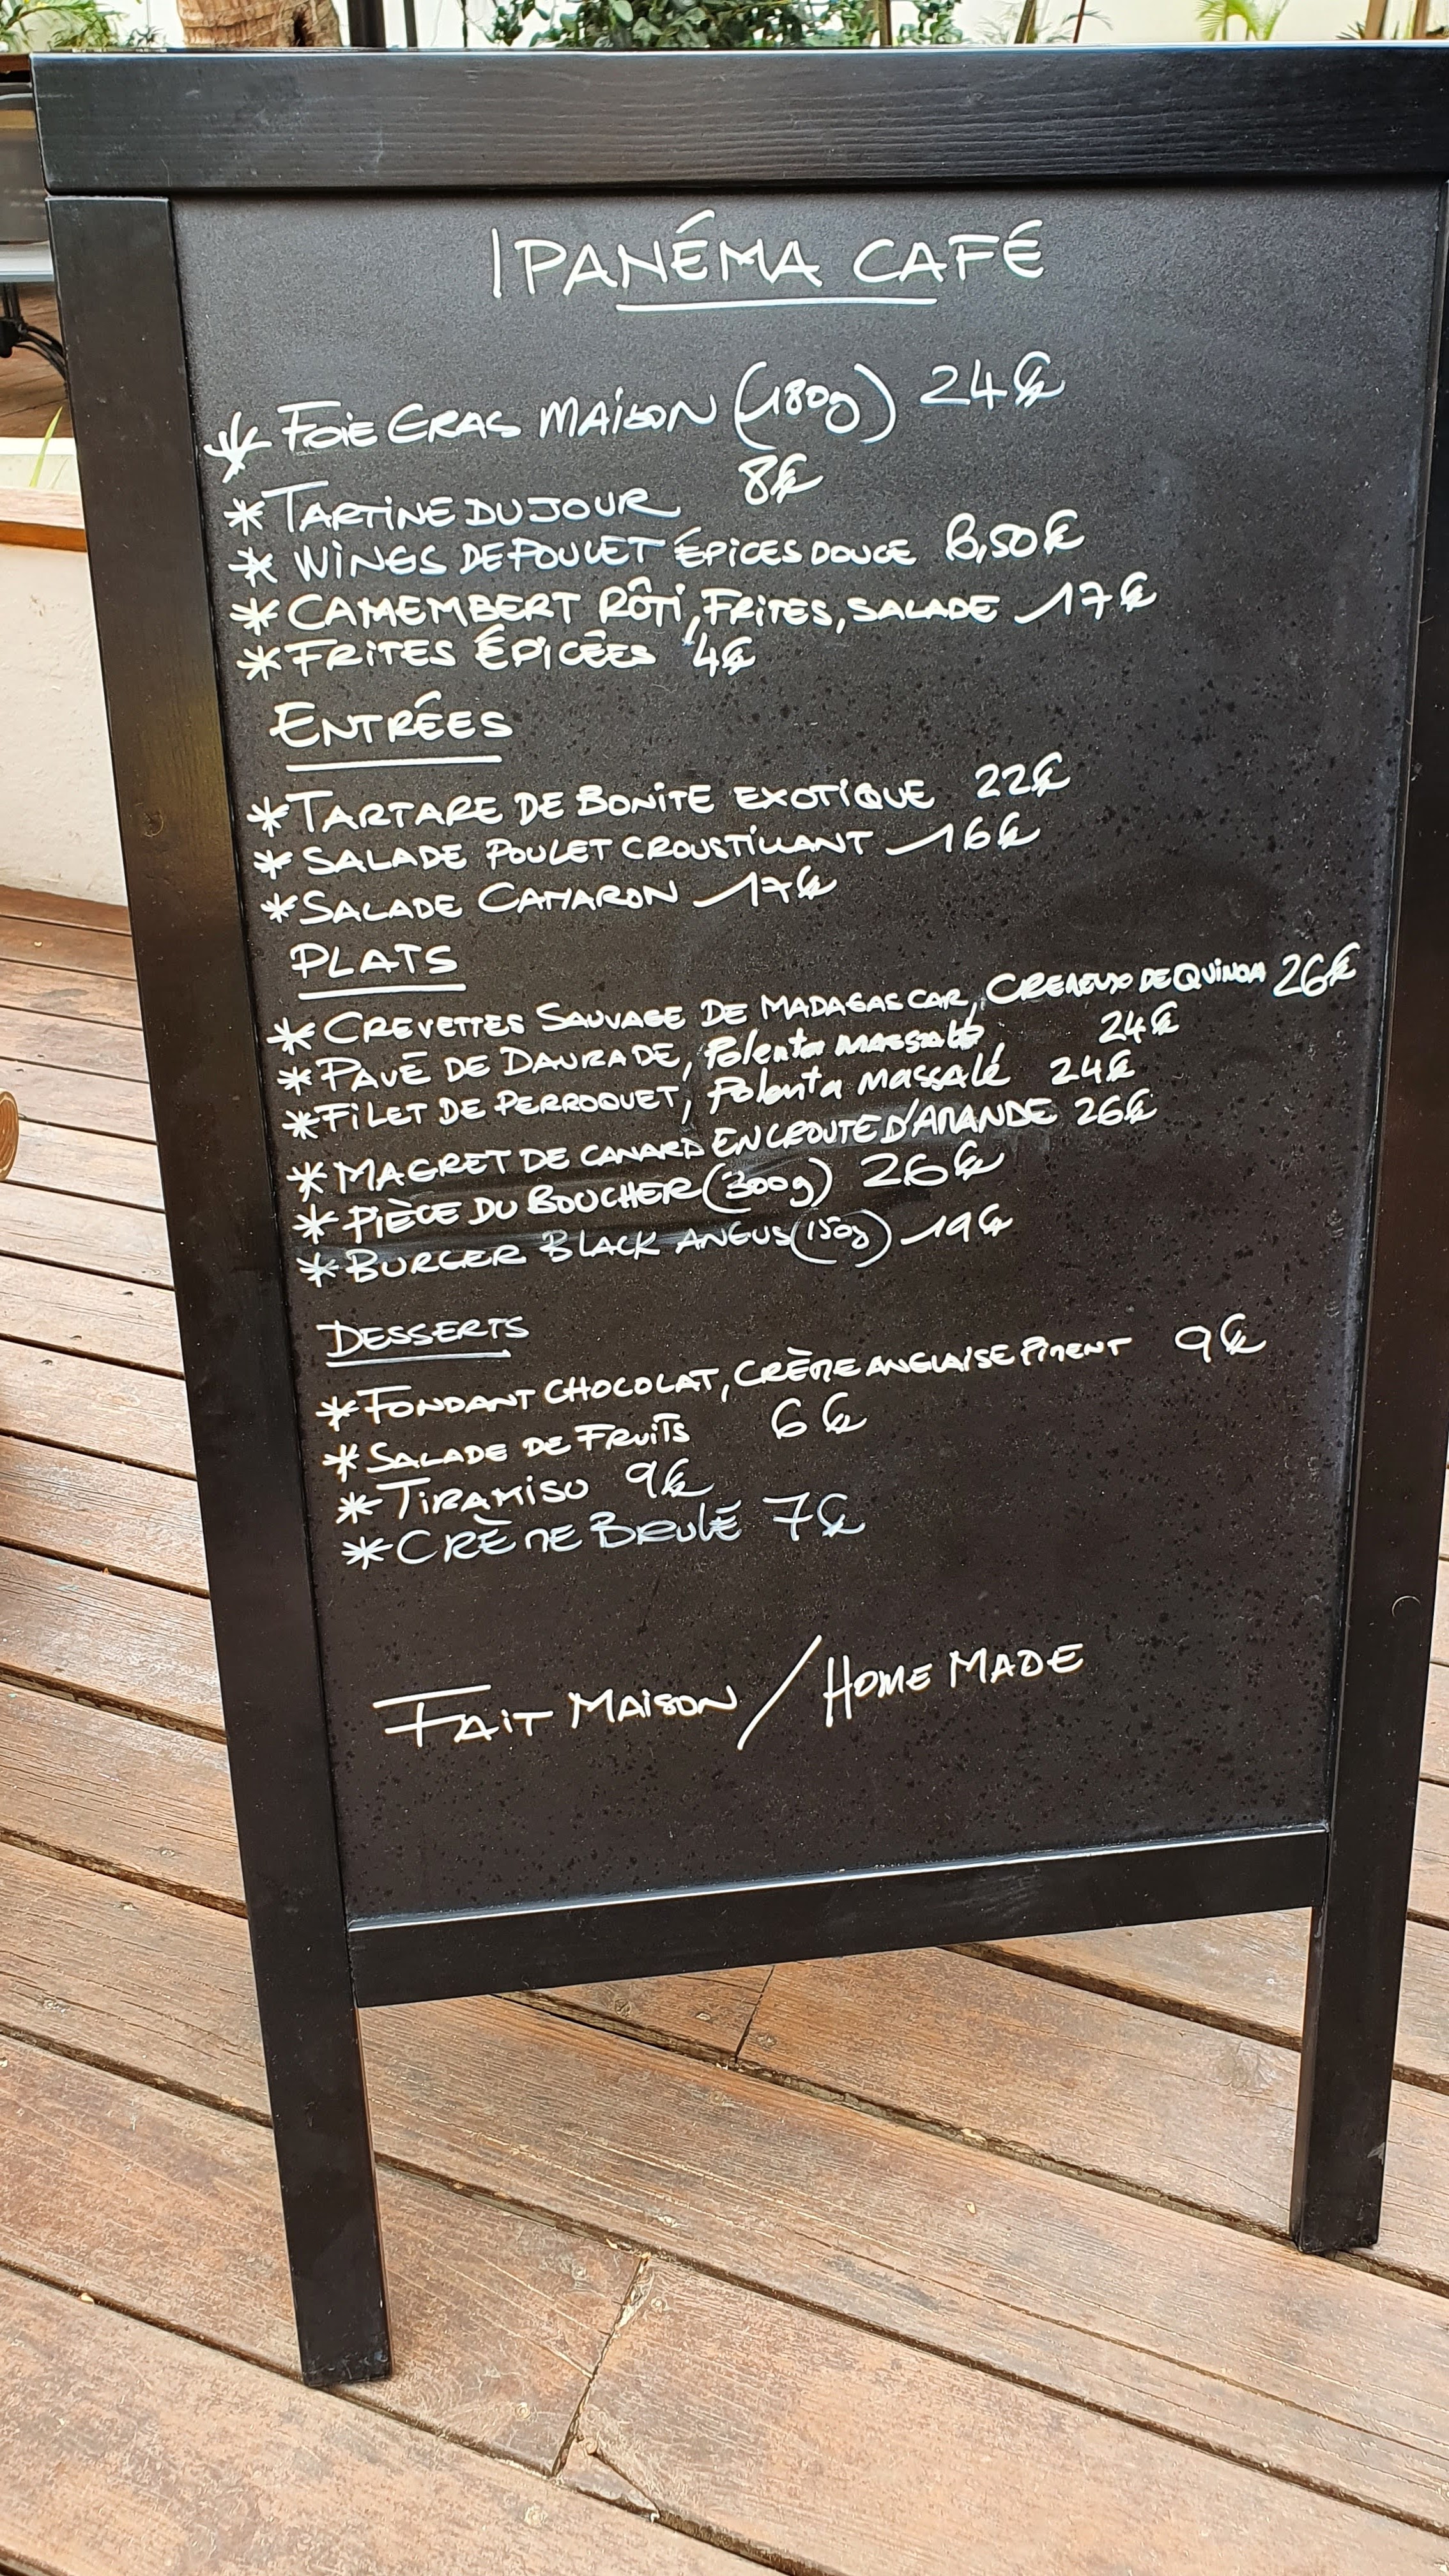 IPANÉMA CAFÉ
* FOIE GRAS MAISON (180g) 24€
* TARTINE DU JOUR 8€
* WINGS DE POULET ÉPICES DOUCE 8,50€
* CAMEMBERT RÔTI, FRITES, SALADE 17€
* FRITES ÉPICÉES 4€
ENTRÉES
* TARTARE DE BONITE EXOTIQUE 22€
* SALADE POULET CROUSTILLANT 16€
* SALADE CAMARON 17€
PLATS
* CREVETTES SAUVAGE DE MADAGASCAR, CREMEUX DE QUINOA 26€
* PAVÉ DE DAURADE, Polenta MASSALÉ 24€
* FILET DE PERROQUET, Polenta MASSALÉ 24€
* MAGRET DE CANARD EN CROUTE D'AMANDE 26€
* PIÈCE DU BOUCHER (300g) 26€
* BURGER BLACK ANGUS (150g) 19€
DESSERTS
* FONDANT CHOCOLAT, CRÈME ANGLAISE PIMENT 9€
* SALADE DE FRUITS 6€
* TIRAMISU 9€
* CRÈME BRULÉ 7€
FAIT MAISON / HOME MADE